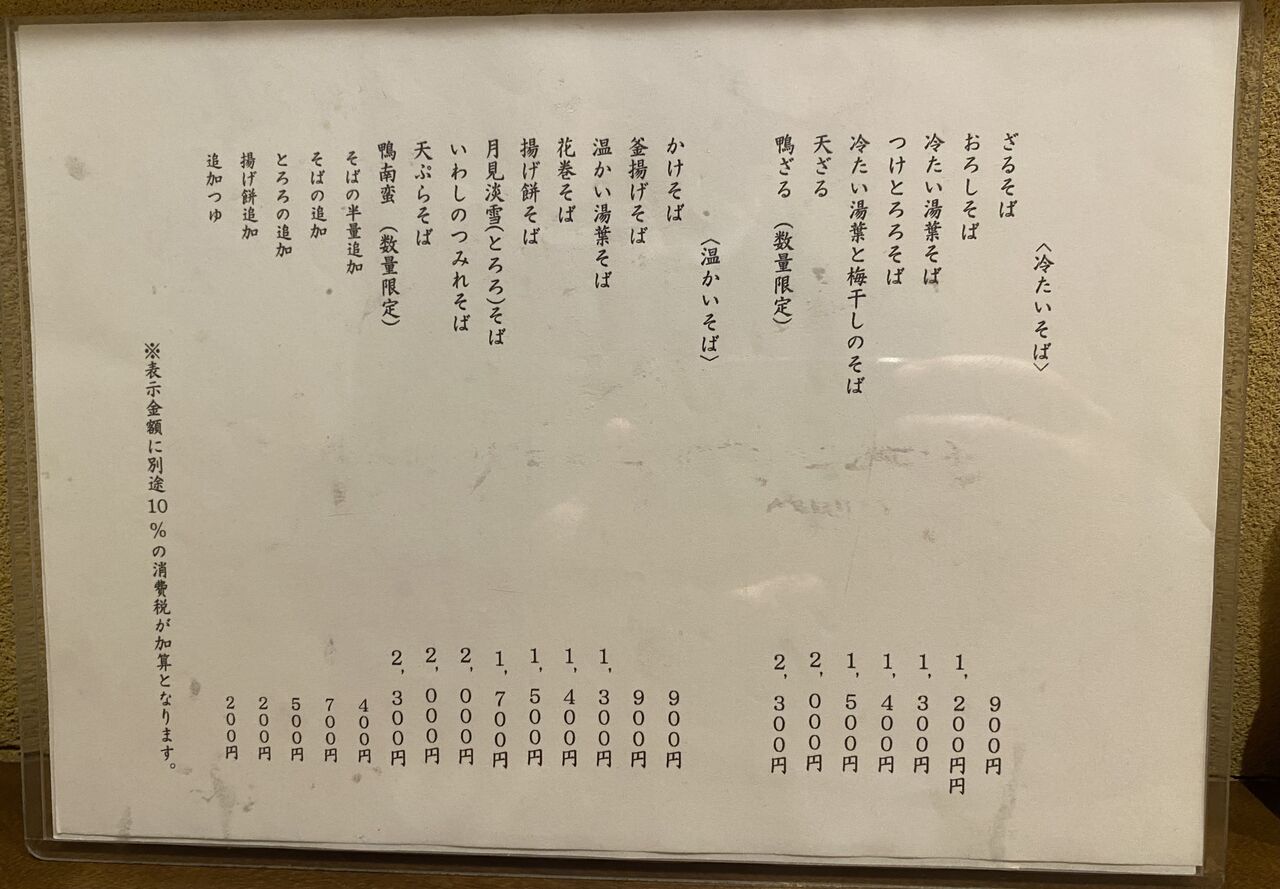 〈冷たいそば〉
ざるそば 900円
おろしそば 1,200円円
冷たい湯葉そば 1,300円
つけとろろそば 1,400円
冷たい湯葉と梅干しのそば 1,500円
天ざる 2,000円
鴨ざる (数量限定) 2,300円
〈温かいそば〉
かけそば 900円
釜揚げそば 900円
温かい湯葉そば 1,300円
花巻そば 1,400円
揚げ餅そば 1,500円
月見淡雪(とろろ)そば 1,700円
いわしのつみれそば 2,000円
天ぷらそば 2,000円
鴨南蛮 (数量限定) 2,300円
そばの半量追加 400円
そばの追加 700円
とろろの追加 500円
揚げ餅追加 200円
追加つゆ 200円
※表示金額に別途10%の消費税が加算となります。